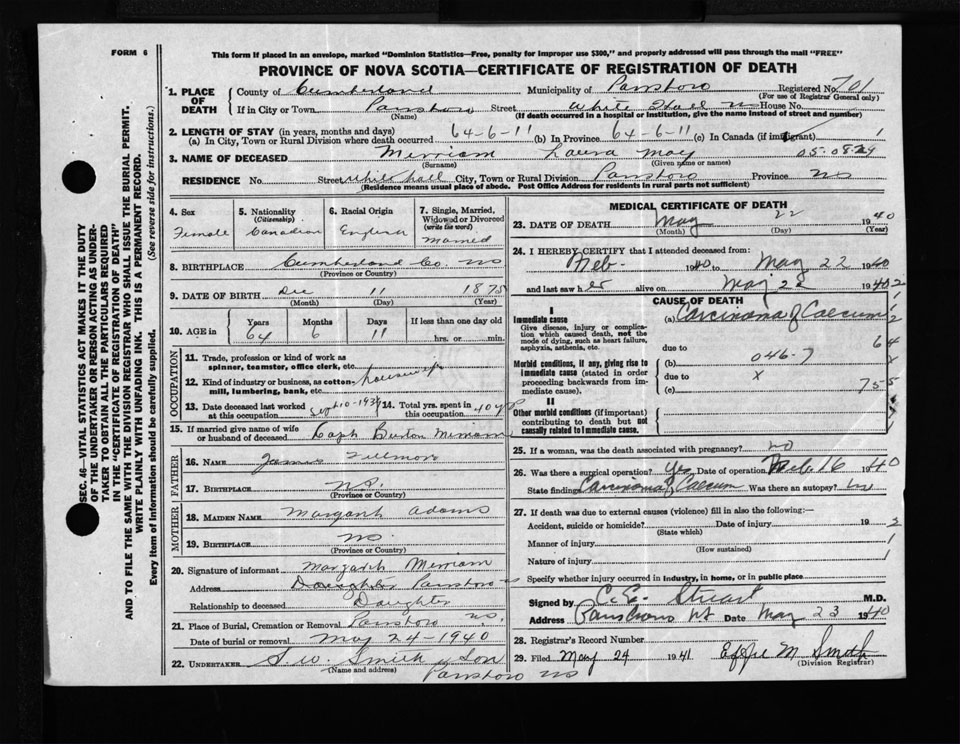 FORM 6
This form if placed in an envelope, marked "Dominion Statistics—Free, penalty for improper use $300," and properly addressed will pass through the mail "FREE"
PROVINCE OF NOVA SCOTIA—CERTIFICATE OF REGISTRATION OF DEATH
SEC. 46—VITAL STATISTICS ACT MAKES IT THE DUTY
OF THE UNDERTAKER OR PERSON ACTING AS UNDER-
TAKER TO OBTAIN ALL THE PARTICULARS REQUIRED
IN THE "CERTIFICATE OF REGISTRATION OF DEATH"
AND TO FILE THE SAME WITH THE DIVISION REGISTRAR WHO SHALL ISSUE THE BURIAL PERMIT.
WRITE PLAINLY WITH UNFADING INK. THIS IS A PERMANENT RECORD.
Every item of information should be carefully supplied. (See reverse side for instructions.)
1. PLACE OF DEATH
County of Cumberland Municipality of Parrsboro Registered No. 701
(For use of Registrar General only)
If in City or Town Parrsboro Street White Hall House No.
(Name) (If death occurred in a hospital or institution, give the name instead of street and number)
2. LENGTH OF STAY (in years, months and days)
(a) In City, Town or Rural Division where death occurred 64-6-11 (b) In Province 64-6-11 (c) In Canada (if immigrant) 1
3. NAME OF DECEASED Merriam Laura May 05-08-29
(Surname) (Given name or names)
RESIDENCE No. Street White hall City, Town or Rural Division Parrsboro Province NS
(Residence means usual place of abode. Post Office Address for residents in rural parts not sufficient)
4. Sex
Female
5. Nationality
(Citizenship)
Canadian
6. Racial Origin
English
7. Single, Married,
Widowed or Divorced
(write the word)
Married
8. BIRTHPLACE Cumberland Co. NS
(Province or Country)
9. DATE OF BIRTH Dec 11 1875
(Month) (Day) (Year)
10. AGE in
Years Months Days If less than one day old
64 6 11 hrs. or min.
OCCUPATION
11. Trade, profession or kind of work as
spinner, teamster, office clerk, etc.
12. Kind of industry or business, as cotton- housewife
mill, lumbering, bank, etc.
13. Date deceased last worked
at this occupation Sept 10-1939
14. Total yrs. spent in
this occupation 40 yrs
15. If married give name of wife
or husband of deceased Capt Burton Merriam
FATHER
16. NAME James Fillmore
17. BIRTHPLACE N.S.
(Province or Country)
MOTHER
18. MAIDEN NAME Margaret Adams
19. BIRTHPLACE NS.
(Province or Country)
20. Signature of informant Margaret Merriam
Address Daughter Parrsboro NS
Relationship to deceased Daughter
21. Place of Burial, Cremation or Removal Parrsboro NS.
Date of burial or removal May 24-1940
22. UNDERTAKER S W Smith & Son
(Name and address)
Parrsboro NS
MEDICAL CERTIFICATE OF DEATH
23. DATE OF DEATH May 22 1940
(Month) (Day) (Year)
24. I HEREBY CERTIFY that I attended deceased from:
Feb- 1940 to May 22 1940
and last saw her alive on May 22 1940
CAUSE OF DEATH
I
Immediate cause
Give disease, injury or complica-
tion which caused death, not the
mode of dying, such as heart failure,
asphyxia, asthenia, etc.
(a) Carcinoma of Caecum
due to 64
Morbid conditions, if any, giving rise to
immediate cause (stated in order
proceeding backwards from im-
mediate cause).
(b) 046-7 x
due to x
(c) 755
II
Other morbid conditions (if important)
contributing to death but not
causally related to immediate cause.
25. If a woman, was the death associated with pregnancy? no
26. Was there a surgical operation? yes Date of operation Feb 16 1940
State finding Carcinoma of Caecum Was there an autopsy? no
27. If death was due to external causes (violence) fill in also the following:—
Accident, suicide or homicide? Date of injury 19
(State which)
Manner of injury
(How sustained)
Nature of injury
Specify whether injury occurred in industry, in home, or in public place
Signed by C. E. Stuart M.D.
Address Parrsboro NS Date May 23 1940
28. Registrar's Record Number
29. Filed May 24 1941 Effie M Smith
(Division Registrar)